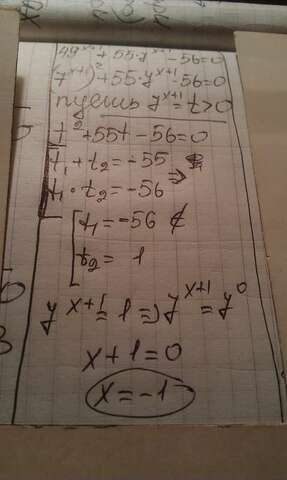 49^(x+1) + 55·7^(x+1) - 56 = 0
(7^(x+1))^2 + 55·7^(x+1) - 56 = 0
пусть 7^(x+1) = t > 0
t^2 + 55t - 56 = 0
t₁ + t₂ = -55
t₁ · t₂ = -56 ⇒
t₁ = -56 ∉
t₂ = 1
7^(x+1) = 1 ⇒ 7^(x+1) = 7^0
x + 1 = 0
x = -1